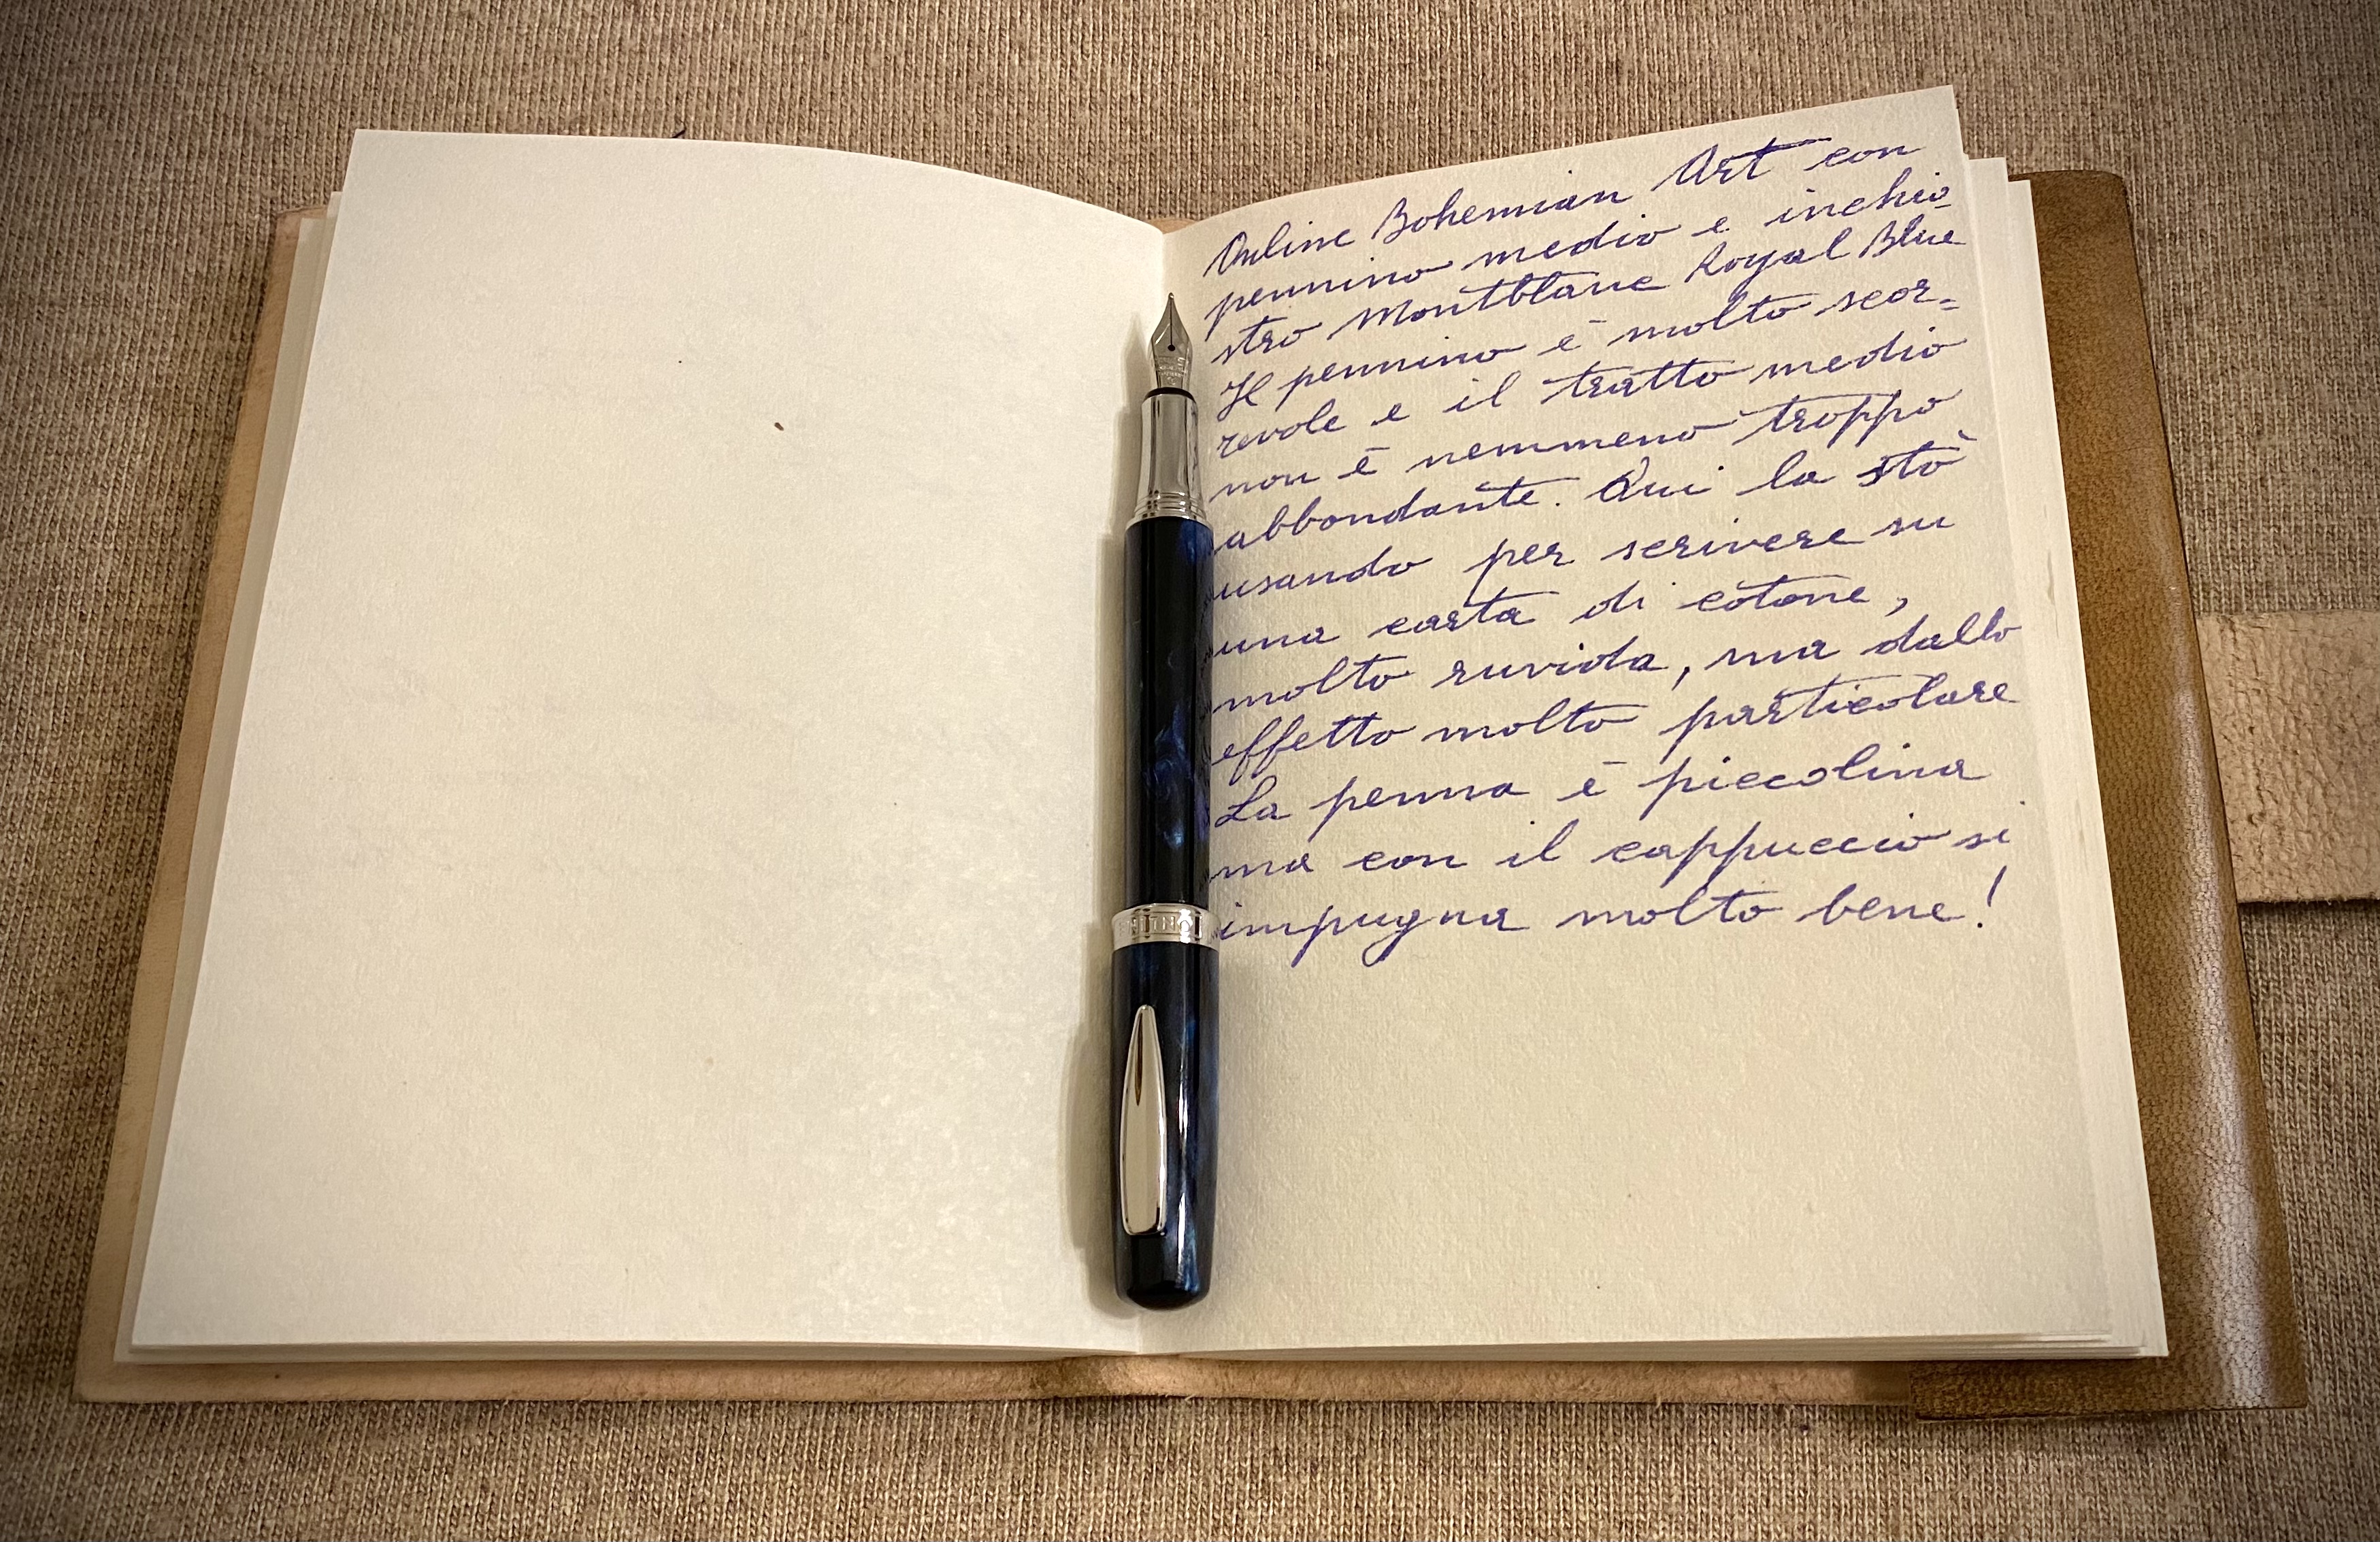 Online Bohemian Art con
pennino medio e inchio-
stro Montblanc Royal Blue
Il pennino è molto scor-
revole e il tratto medio
non è nemmeno troppo
abbondante. Qui la stò
usando per scrivere su
una carta di cotone,
molto ruvida, ma dallo
effetto molto particolare
La penna è piccolina
ma con il cappuccio si
impugna molto bene!